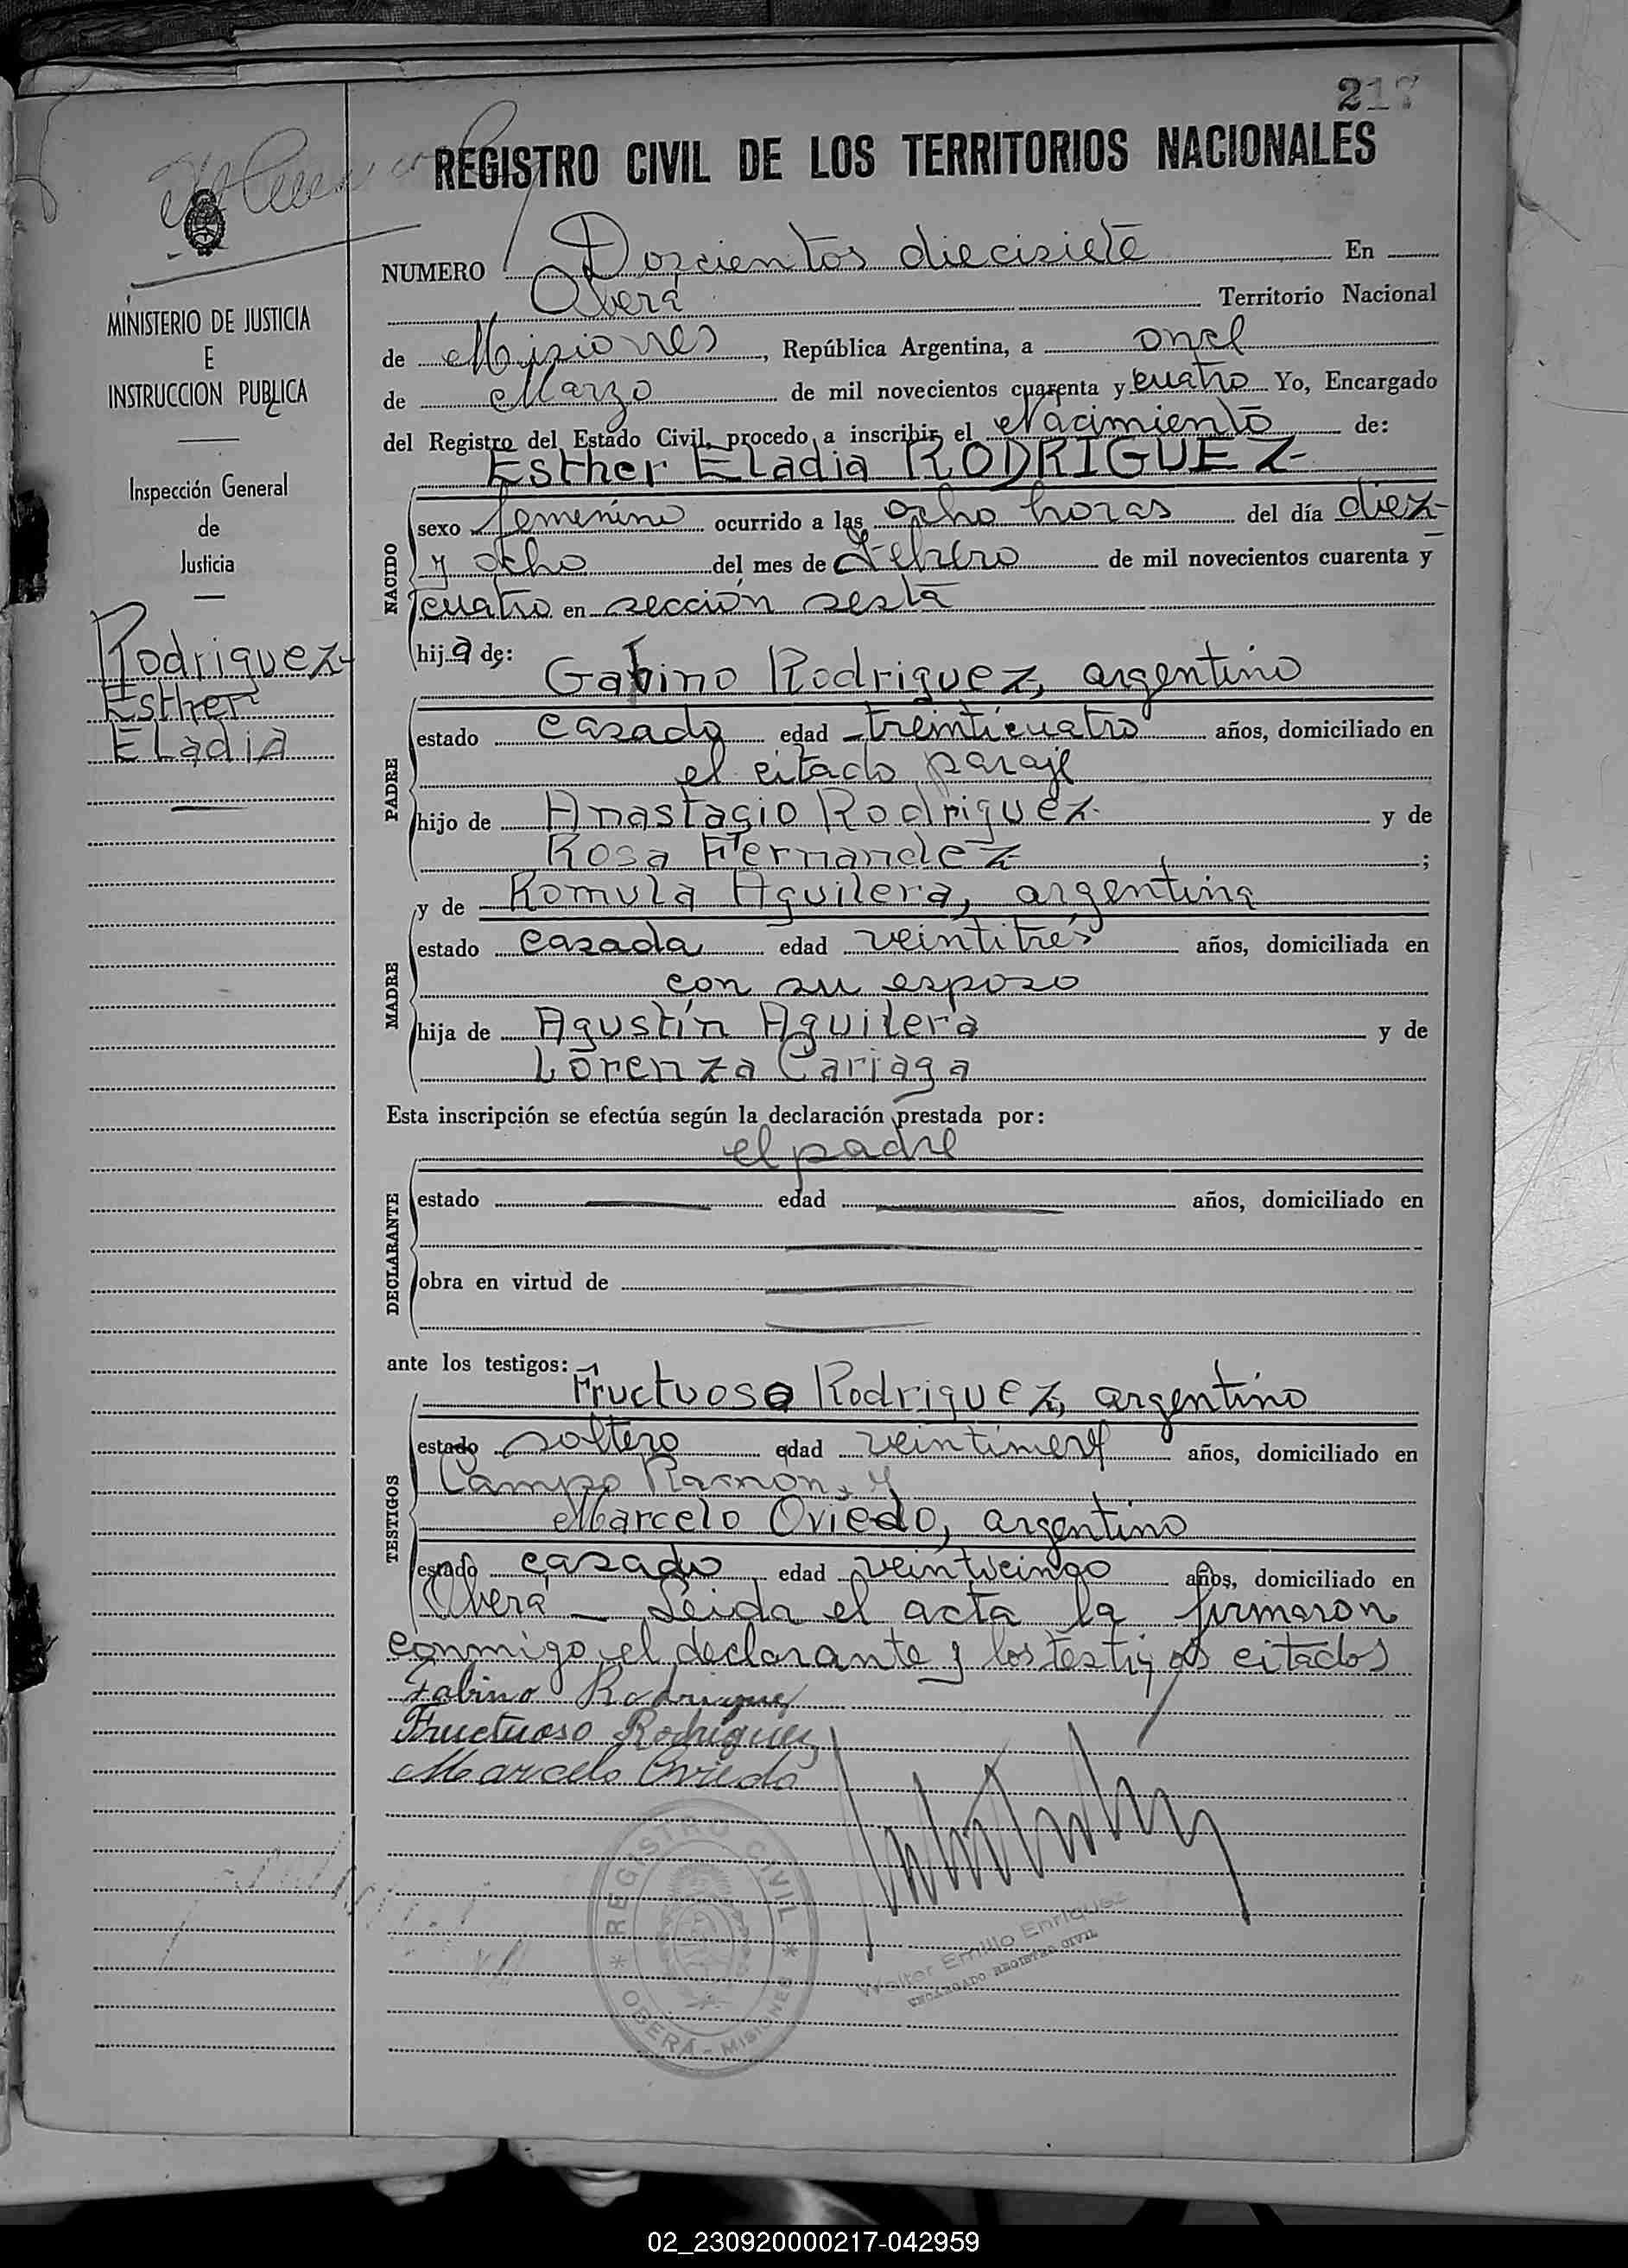 217
REGISTRO CIVIL DE LOS TERRITORIOS NACIONALES
MINISTERIO DE JUSTICIA
E
INSTRUCCION PUBLICA
Inspección General
de
Justicia
Rodriguez
Esther
Eladia
NUMERO Doscientos diecisiete En
Oberá Territorio Nacional
de Misiones, República Argentina, a once
de Marzo de mil novecientos cuarenta y cuatro Yo, Encargado
del Registro del Estado Civil, procedo a inscribir el Nacimiento de:
Esther Eladia RODRIGUEZ
NACIDO
sexo femenino ocurrido a las ocho horas del día diez
y ocho del mes de Febrero de mil novecientos cuarenta y
cuatro en sección sesta
hija de:
Gabino Rodriguez, argentino
PADRE
estado casado edad treinticuatro años, domiciliado en
el citado paraje
hijo de Anastacio Rodriguez y de
Rosa Fernandez ;
y de Romula Aguilera, argentina
MADRE
estado casada edad veintitrés años, domiciliada en
con su esposo
hija de Agustín Aguilera y de
Lorenza Cariaga
Esta inscripción se efectúa según la declaración prestada por:
el padre
DECLARANTE
estado edad años, domiciliado en
obra en virtud de
ante los testigos:
Fructuoso Rodriguez, argentino
TESTIGOS
estado soltero edad veintinueve años, domiciliado en
Campo Ramon, y
Marcelo Oviedo, argentino
estado casado edad veinticinco años, domiciliado en
Oberá - Leida el acta la firmaron
conmigo el declarante y los testigos citados
Gabino Rodriguez
Fructuoso Rodriguez
Marcelo Oviedo
REGISTRO CIVIL
OBERÁ - MISIONES
Walter Emilio Enriquez
ENCARGADO REGISTRO CIVIL
02_230920000217-042959